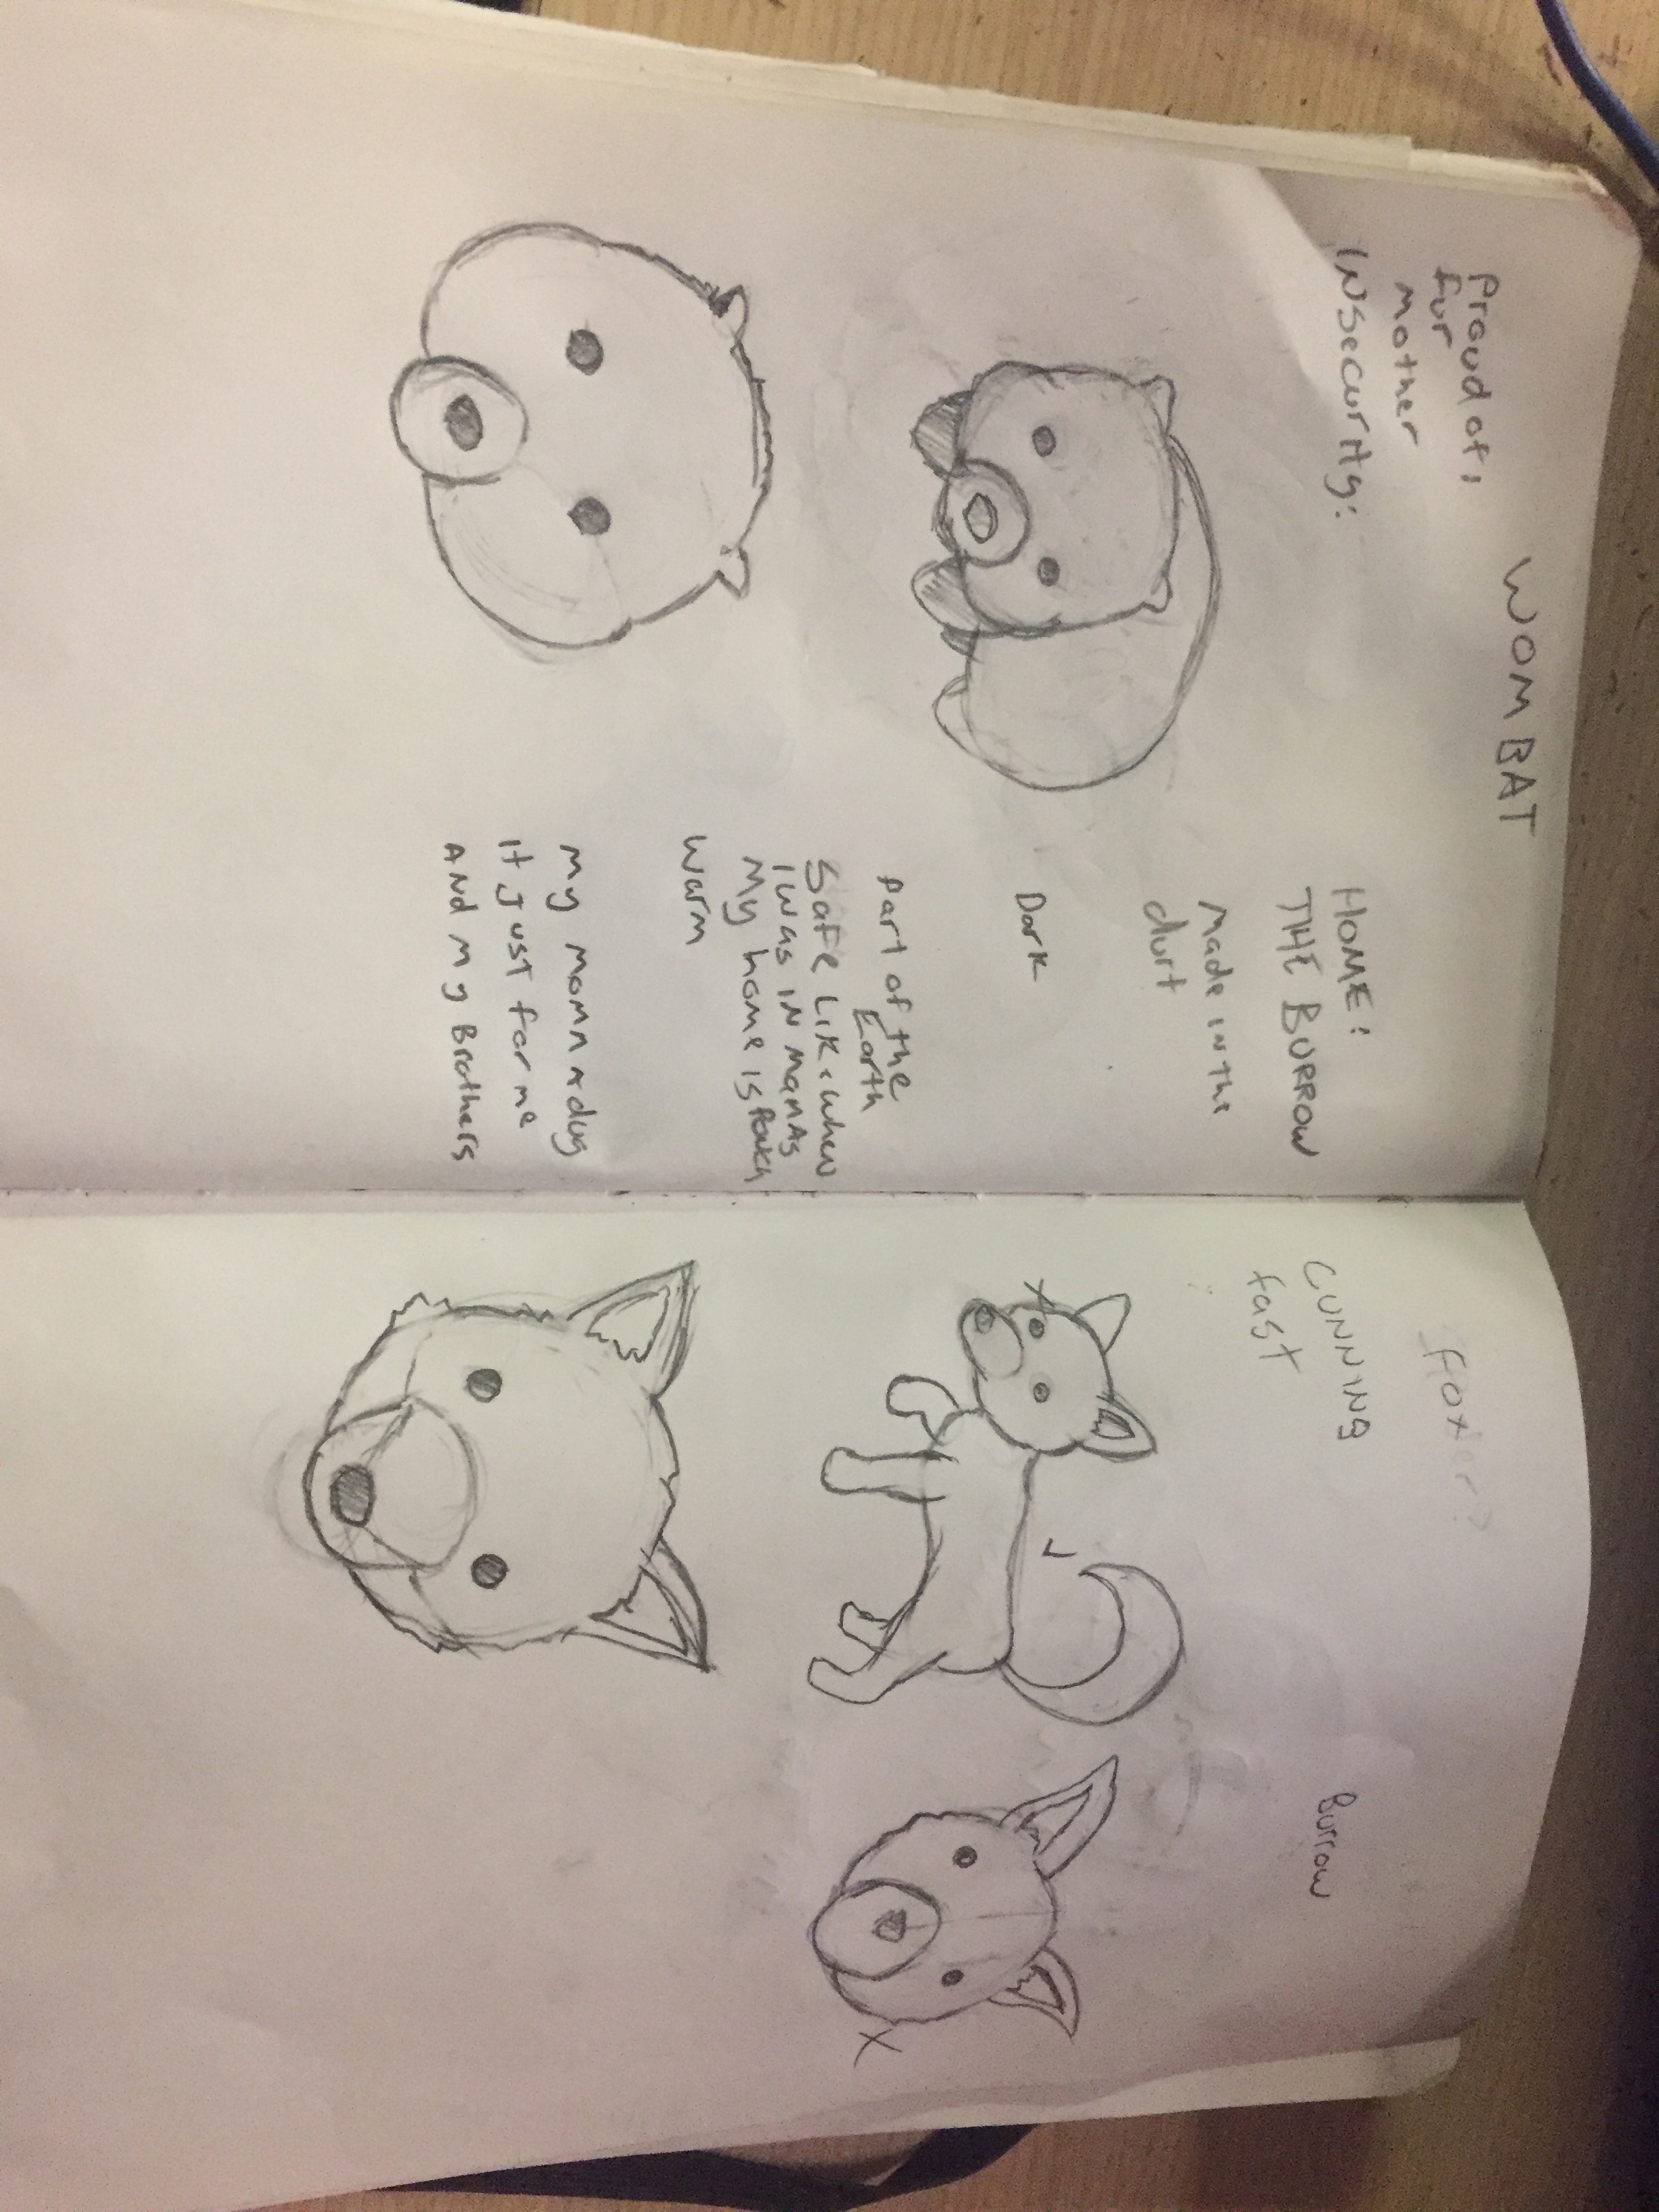 WOMBAT
Proud of:
fur
mother
INSecurity:
HOME:
THE BURROW
made in the
durt
Dark
Part of the
Earth
Safe Like when
I was IN mamas
My home is Pouch
warm
my momma dug
It Just for me
AND my Brothers
fox
CUNNING
fast
Burrow